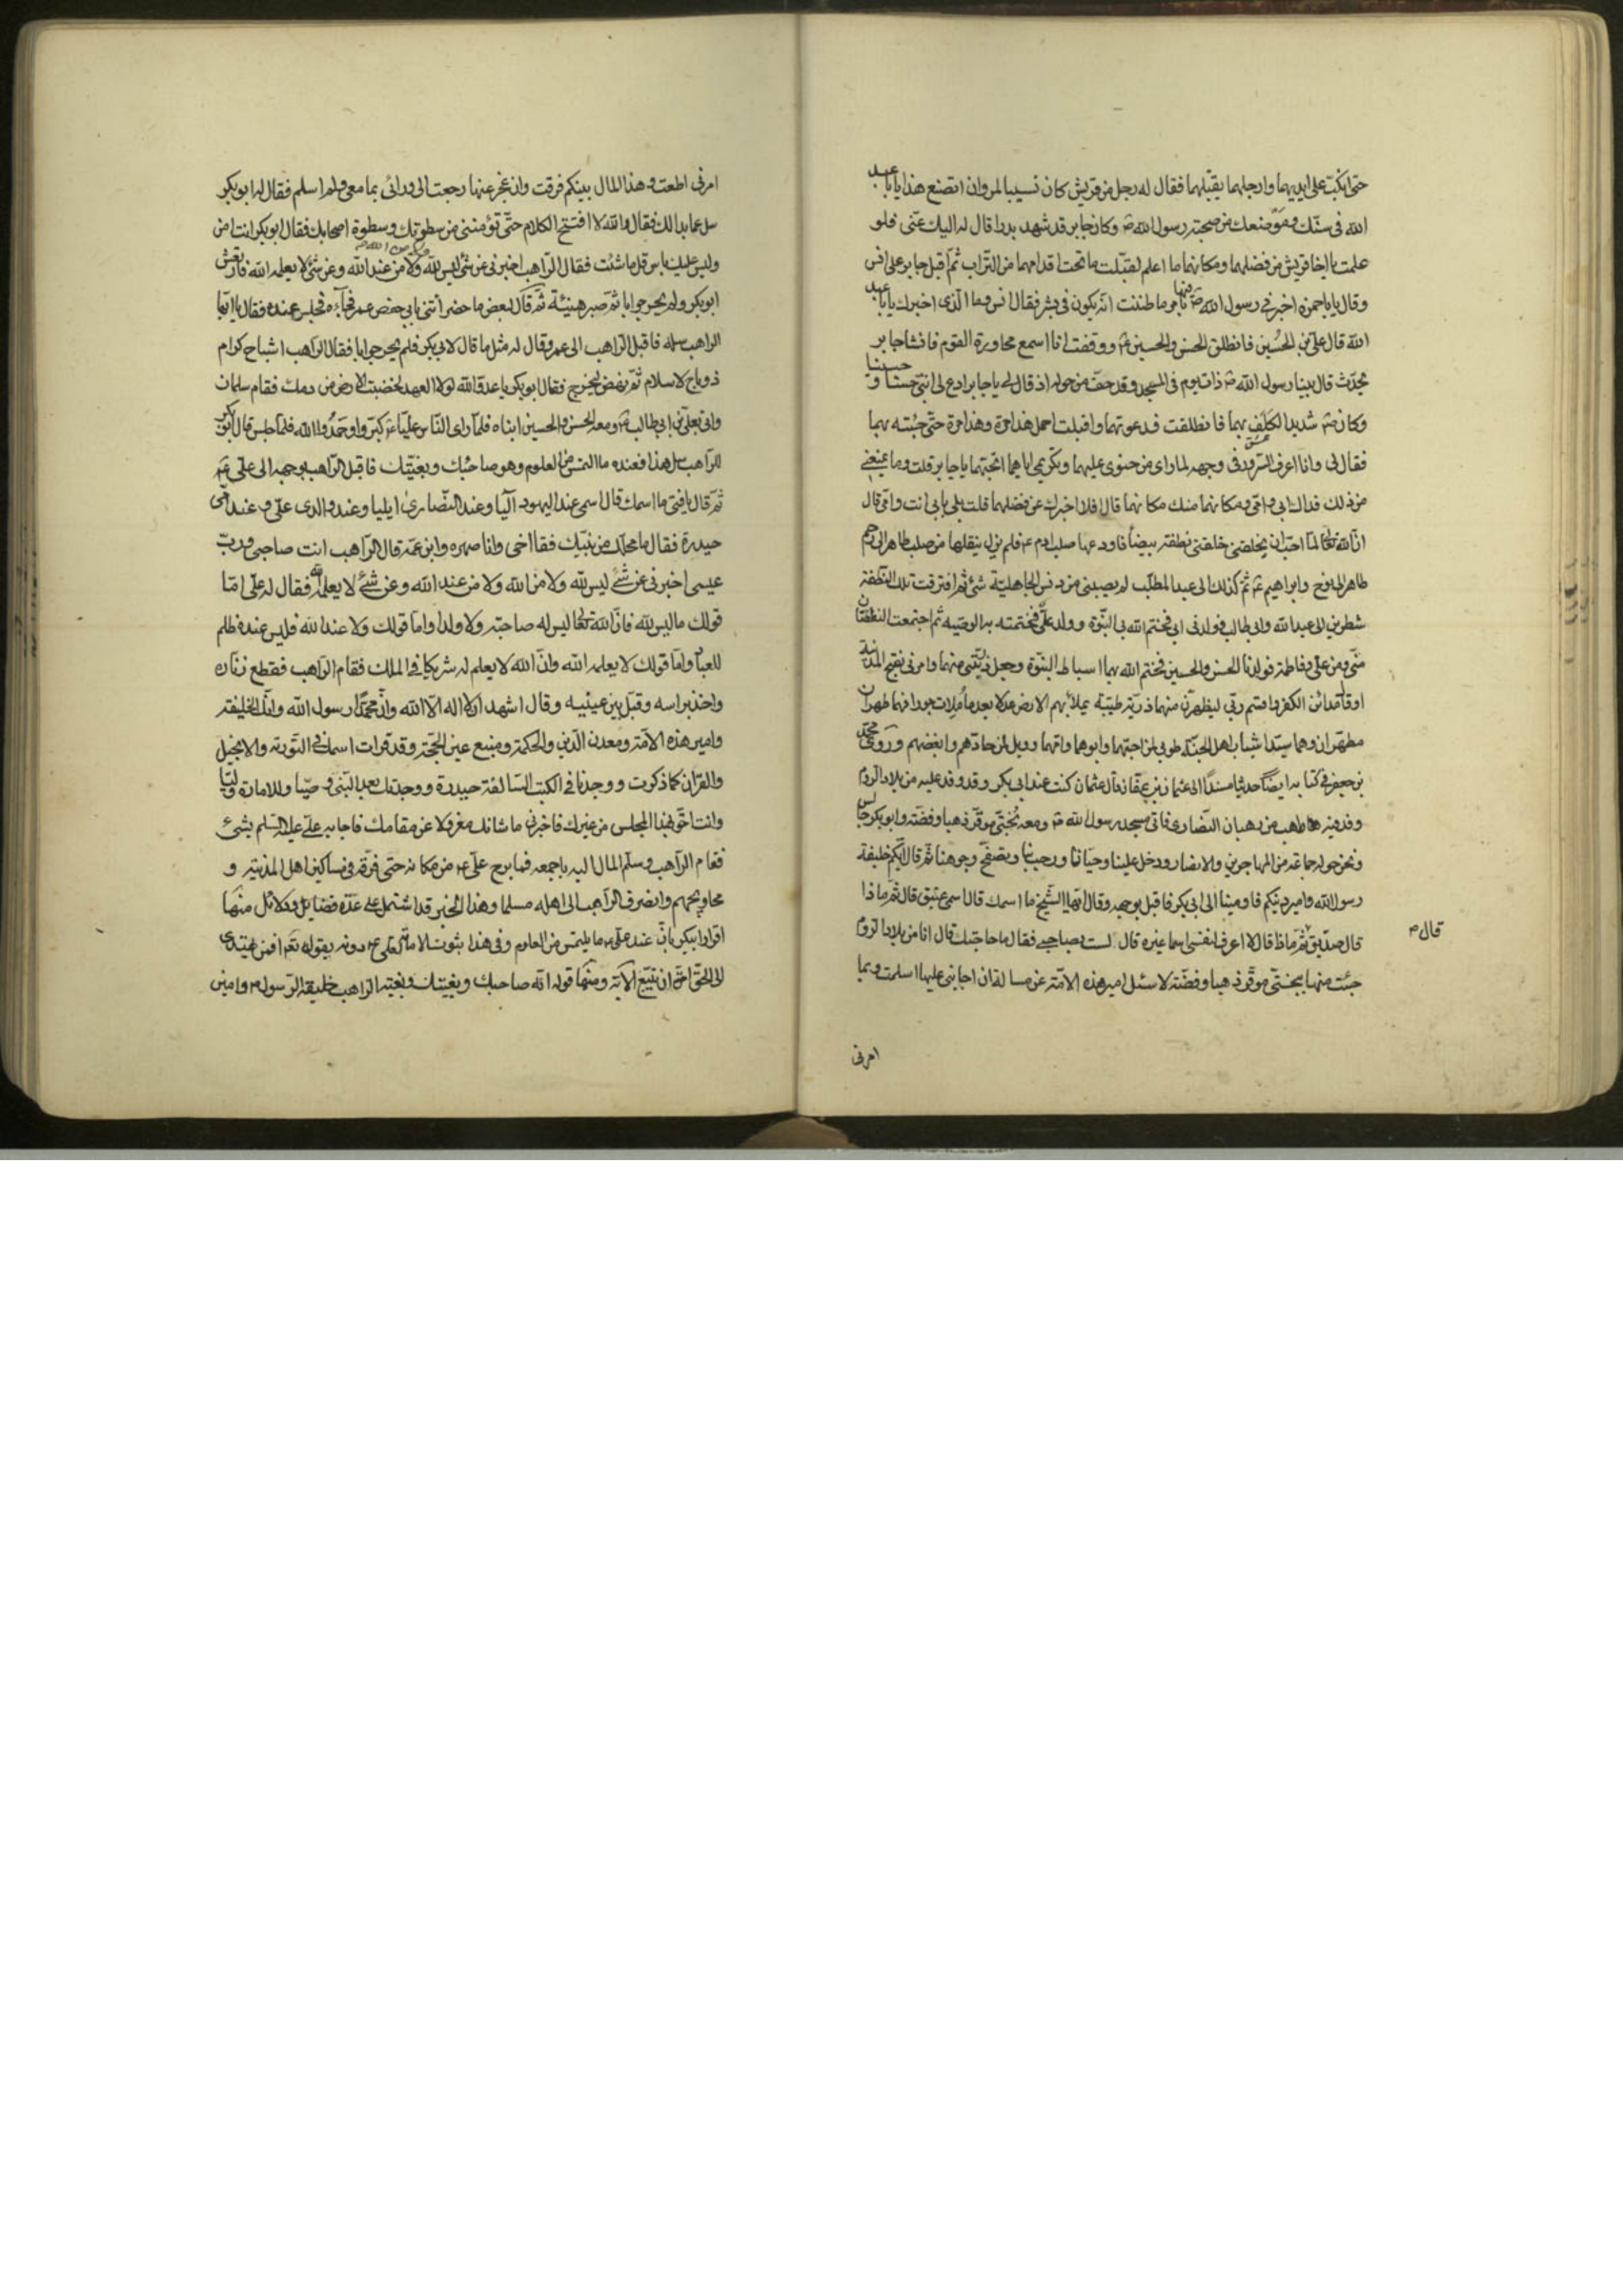 حتى انكبّ على ايديهما وارجلهما يقبّلهما فقال له رجل من قريش كان نسيبا لمروان اتصنع هذا يا با عبد
الله فى سنّك وموضعك من صحبة رسول الله ص وكان جابر قد شهد بدرا قال له اليك عنّى فلو
علمت يا اخا قريش من فضلهما ومكانهما ما اعلم لقبّلت ما تحت اقدامهما من التراب ثم اقبل جابر على انس
وقال يا با حمزه اخبرنى رسول الله ص فيهما بامر ما ظننت انّه يكون فى بشر فقال انس وما الذى اخبرك يا با عبد
الله قال على بن الحسين فانطلق الحسن والحسين ع ووقفت انا اسمع محاورة القوم فانشا جابر
يحدّث قال بينا رسول الله ص ذات يوم فى المسجد وقد حفّ من حوله اذ قال لى يا جابر ادع لى ابنىّ حسنا و حسينا
وكان ص شديد الكلف بهما فانطلقت فدعوتهما واقبلت احمل هذا مرة وهذا مرة حتى جئته بهما
فقال لى وانا اعرف السرور فى وجهه لما راى من حنوى عليهما وتكريمى اياهما اتحبّهما يا جابر قلت وما يمنعنى
من ذلك فداك ابى وامّى ومكانهما منك مكانهما قال افلا اخبرك عن فضلهما قلت بلى بابى انت وامّى قال
انّ الله تعالى لمّا احبّ ان يخلقنى خلقنى نطفة بيضأ فاودعها صلب ادم ع فلم يزل ينقلها من صلب طاهر الى رحم
طاهر الى نوح وابراهيم ع ثم كذلك الى عبد المطلّب لم يصبنى من دنس الجاهليّة شئ ثم افترقت تلك النطفة
شطرين الى عبد الله وابى طالب فولدنى ابى فختم الله بى النبوّة وولد علىّ فختمت به الوصيّه ثم اجتمعت النطفتان
منّى ومن علىّ وفاطمة فولدنا الحسن والحسين فختم الله بهما اسباط النبوّة وجعل ذرّيّتى منهما وامرنى بفتح المدينة
او قال مدائن الكفر واقسم ربّى ليظهرنّ منهما ذرّيّة طيّبة يملأ بهم الارض عدلا بعد ما ملات جورا فهما طهران
مطهّران وهما سيّدا شباب اهل الجنّة طوبى لمن احبّهما وابوهما وامّهما وويل لمن حادّهم وابغضهم وروى محمّد
بن جعفر فى كتابه ايضًا حديثا مسندًا الى عثمان بن عفّان قال عثمان كنت عند ابى بكر وقد وفد عليه من بلاد الروم
وفد فيه راهب من رهبان النصارى فاتى مسجد رسول الله ص ومعه بُختىّ موقّر ذهبا وفضّة وابو بكر جالس
ونحن حوله جماعة من المهاجرين والانصار ودخل علينا وحيّانا ورحب بنا وتصفّح وجوهنا ثم قال ايّكم خليفة
رسول الله وامير دينكم فاومينا الى ابى بكر فاقبل بوجهه وقال ايّها الشّيخ ما اسمك قال اسمى عتيق قال ثم ماذا
قال صدّيق قال ثم ماذا قال لا اعرف لنفسى اسما غيره قال لست بصاحبى فقال ما حاجتك قال انا من بلاد الروم
قال م
جئت منها ببختىّ موقّر ذهبا وفضّة لاسئل امير هذه الامّة عن مسالة ان اجابنى عليها اسلمت وبما
امرنى
امرنى اطعت وهذا المال بينكم فرقت وان عجز عنها رجعت الى ورائى بما معى ولم اسلم فقال له ابو بكر
سل عما بدا لك فقال والله لا افتتح الكلام حتّى تؤمننى من سطوتك وسطوة اصحابك فقال ابو بكر انت امن
وليس عليك باس قل ما شئت فقال الراهب اخبرنى عن شئ ليس لله ولا من عند الله وعن شئ لا يعلمه الله فارتعش
ابو بكر ولم يحر جوابا ثم صبر هنيئة ثم قال لبعض ما حضر ائتنى بابى حفص عمر فجاءه فجلس عنده فقال يا ايّها
الراهب سله فاقبل الراهب الى عمر وقال له مثل ما قال لابى بكر فلم يحر جوابا فقال الراهب اشباح كرام
ذو باج لاسلام ثم نهض ليخرج فقال ابو بكر يا عدوّ الله لولا العهد لخضبت الارض من دمك فقام سلمان
واتى بعلى بن ابى طالب ع ومعه الحسن والحسين ابناه فلمّا راى النّاس عليّا ع كبّروا وحمّدوا الله فلمّا جلس قال ابو بكر
للراهب سل هذا فعنده ما التمس من العلوم وهو صاحبك وبغيتك فاقبل الراهب بوجهه الى علىّ ع
ثم قال يا فتى ما اسمك قال اسمى عند اليهود اليا وعند النصارى ايليا وعند والدى علىّ وعند امّى
حيدرة فقال ما محلّك من نبيّك فقال اخى وانا صهره وابن عمّه قال الراهب انت صاحبى وربّ
عيسى اخبرنى عن شئ ليس لله ولا من الله ولا من عند الله وعن شئ لا يعلمه الله فقال له على امّا
قولك ما ليس لله فانّ الله تعالى ليس له صاحبة ولا ولدا واما قولك ولا عند الله فليس عنده ظلم
للعباد واما قولك لا يعلمه الله وانّ الله لا يعلم له شريكا فى الملك فقام الراهب فقطع زنّاره
واخذ براسه وقبّل بين عينيه وقال اشهد ان لا اله الا الله وانّ محمّدًا رسول الله وانّك الخليفة
وامير هذه الامّة ومعدن الدّين والحكمة ومنبع عين الحجّة وقد قرات اسمك فى التورية والانجيل
والقران كما ذكرت ووجدنا فى الكتب السّالفة حيدرة ووجدتك بعد النّبى وصيّا وللامارة وليّا
وانت احقّ بهذا المجلس من غيرك فاخبرنى ما شانك معزولا عن مقامك فاجابه علىّ عليه السّلم بشئ
فقام الراهب وسلّم المال اليه باجمعه فما برح علىّ ع من مكانه حتى فرّقه فى مساكين اهل المدينة و
محاويجهم وانصرف الراهب الى اهله مسلما وهذا الخبر قد اشتمل على عدّة فضايل ودلائل منها
اقرار ابى بكر بانّ عند علىّ ع ما يلتمس من العلوم وفى هذا ثبوت الامامة لعلى ع دونه بقوله تع افمن يهتدى
الى الحقّ احقّ ان يتّبع الاية ومنها قوله انّه صاحبك وبغيتك وبغية الراهب خليفة الرّسول ص وامين